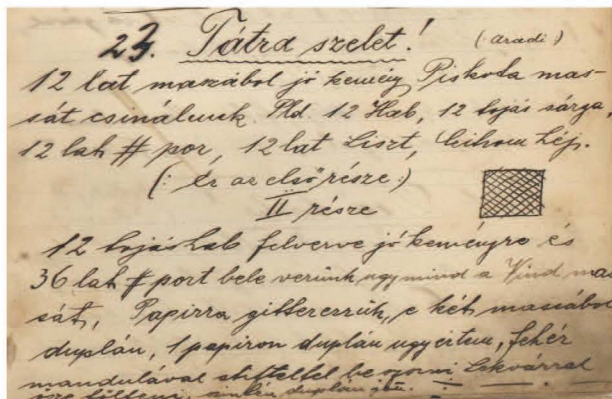 23. Tátra szelet! (aradi)
12 lat massából jó kemény Piskota mas-
sát csinálunk. Pld. 12 Hab, 12 tojás sárga,
12 lat # por, 12 lat Liszt, Citrom héj.
(: Ez az első része :)
II része
12 tojáshab felverve jó keményre és
36 lat # port bele verünk ugy mind a Vind mas
sát, Papirra gitterezzük, e két massából
duplán, 1 papiron duplán ugyeitem, fehér
mandulával stiftellel beszorni Lekvárral
duplán